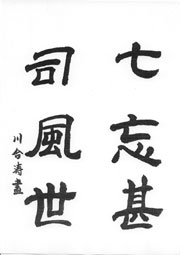 七忘甚
司風世
川合寿畫